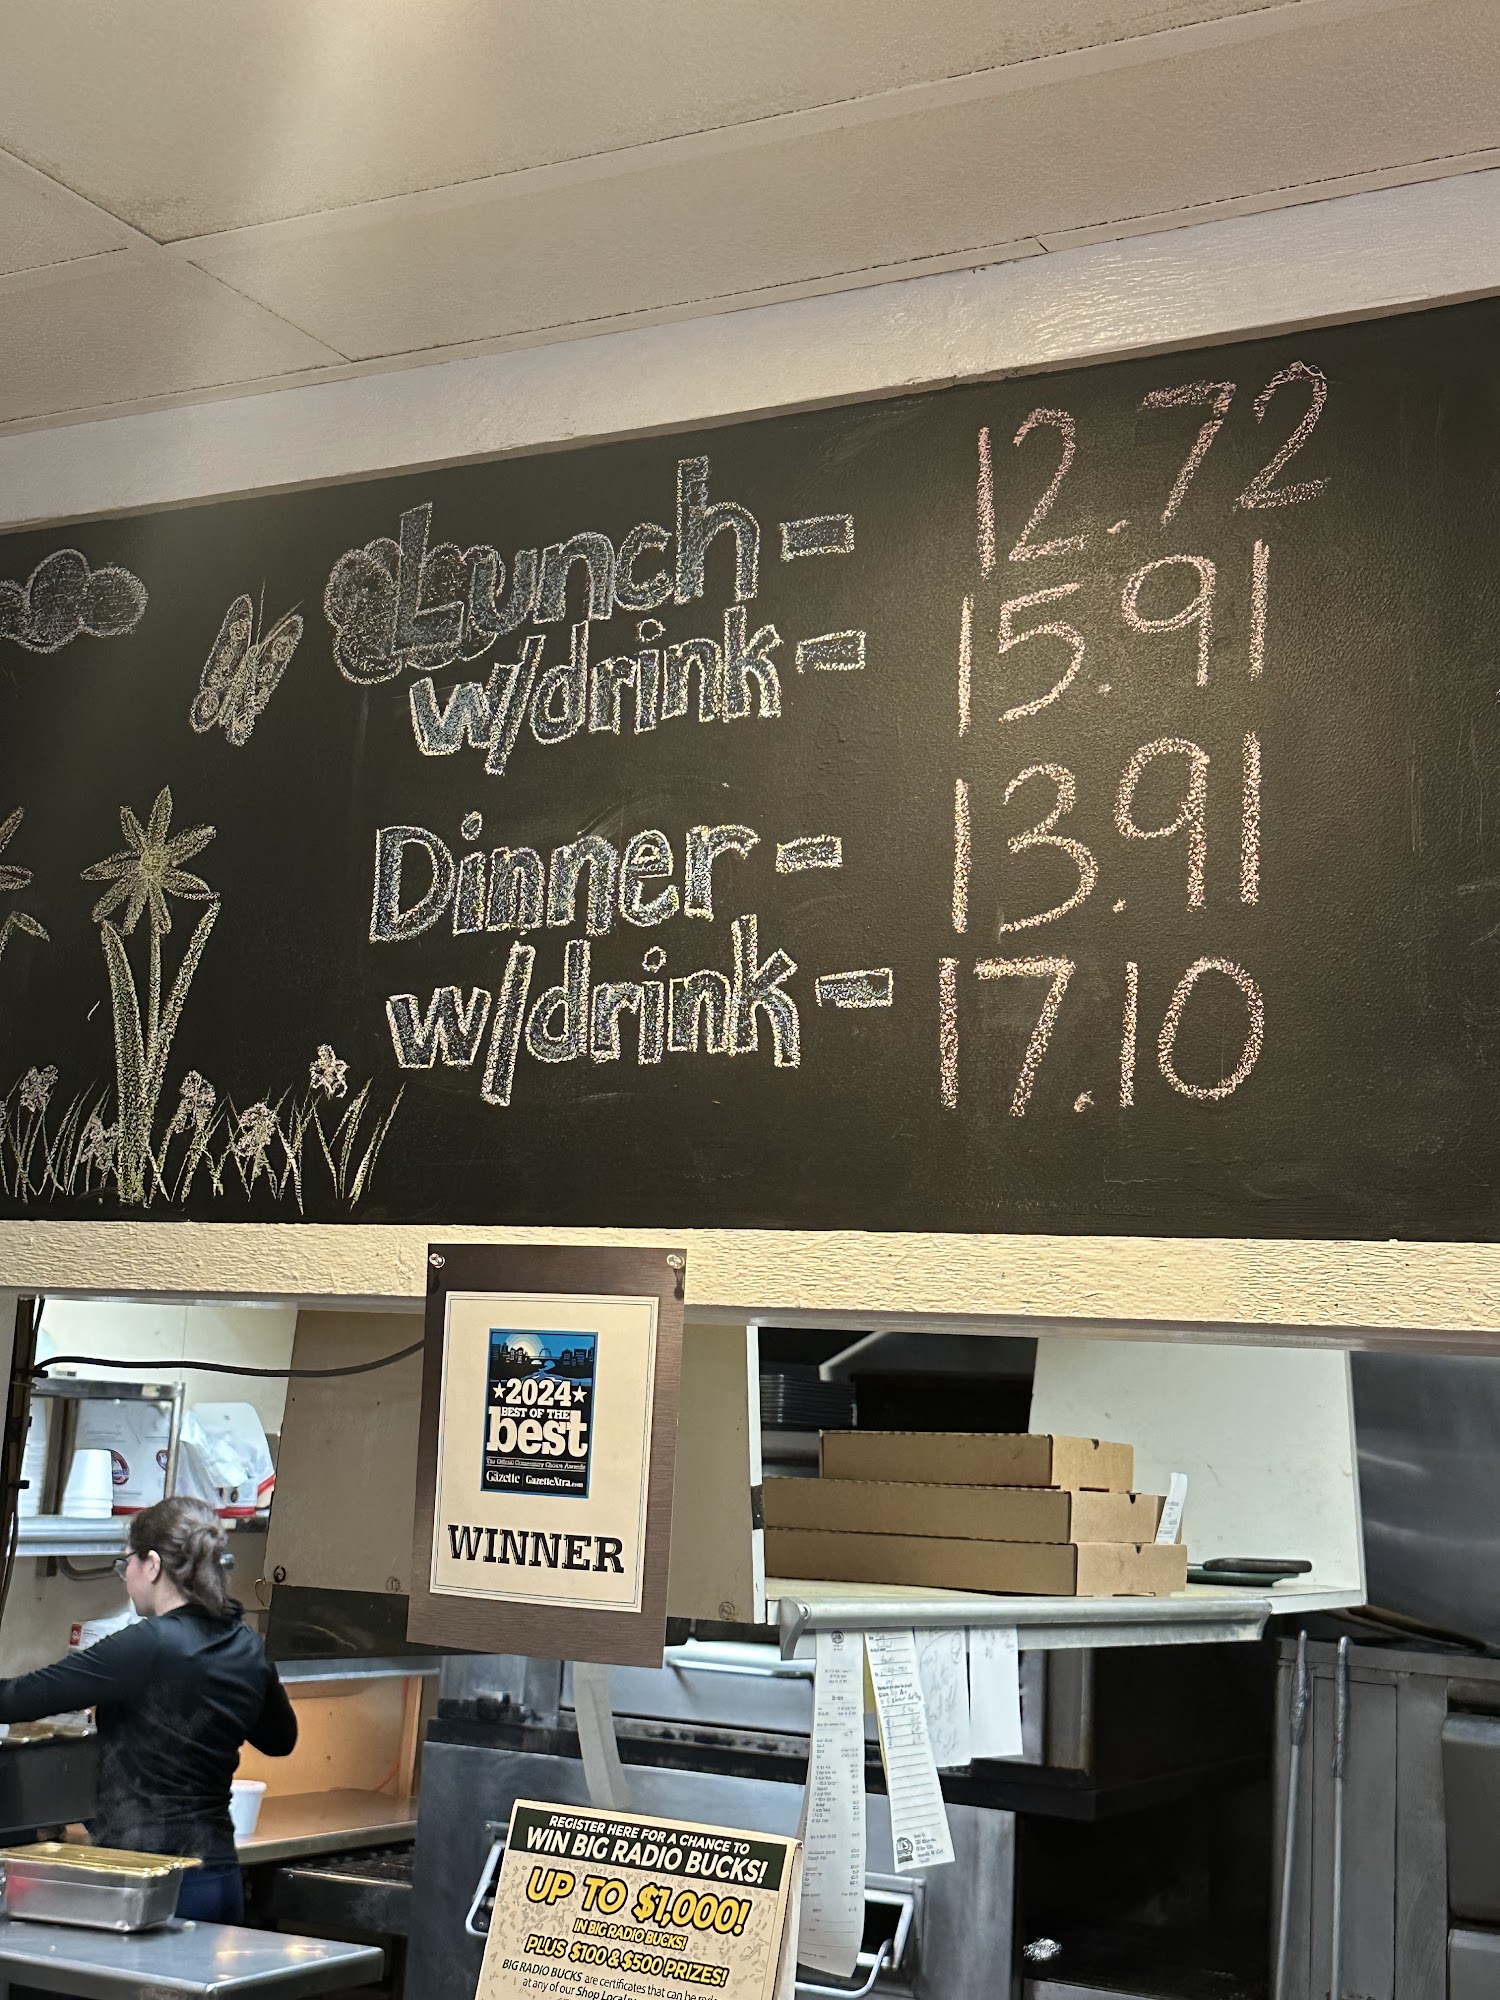 Lunch - 12.72
w/drink - 15.91
Dinner - 13.91
w/drink - 17.10
★2024★
BEST OF THE
best
The Official Community Choice Awards
Gazette | GazetteXtra.com
WINNER
REGISTER HERE FOR A CHANCE TO
WIN BIG RADIO BUCKS!
UP TO $1,000!
IN BIG RADIO BUCKS!
PLUS $100 & $500 PRIZES!
BIG RADIO BUCKS are certificates that can be
at any of our Shop Local